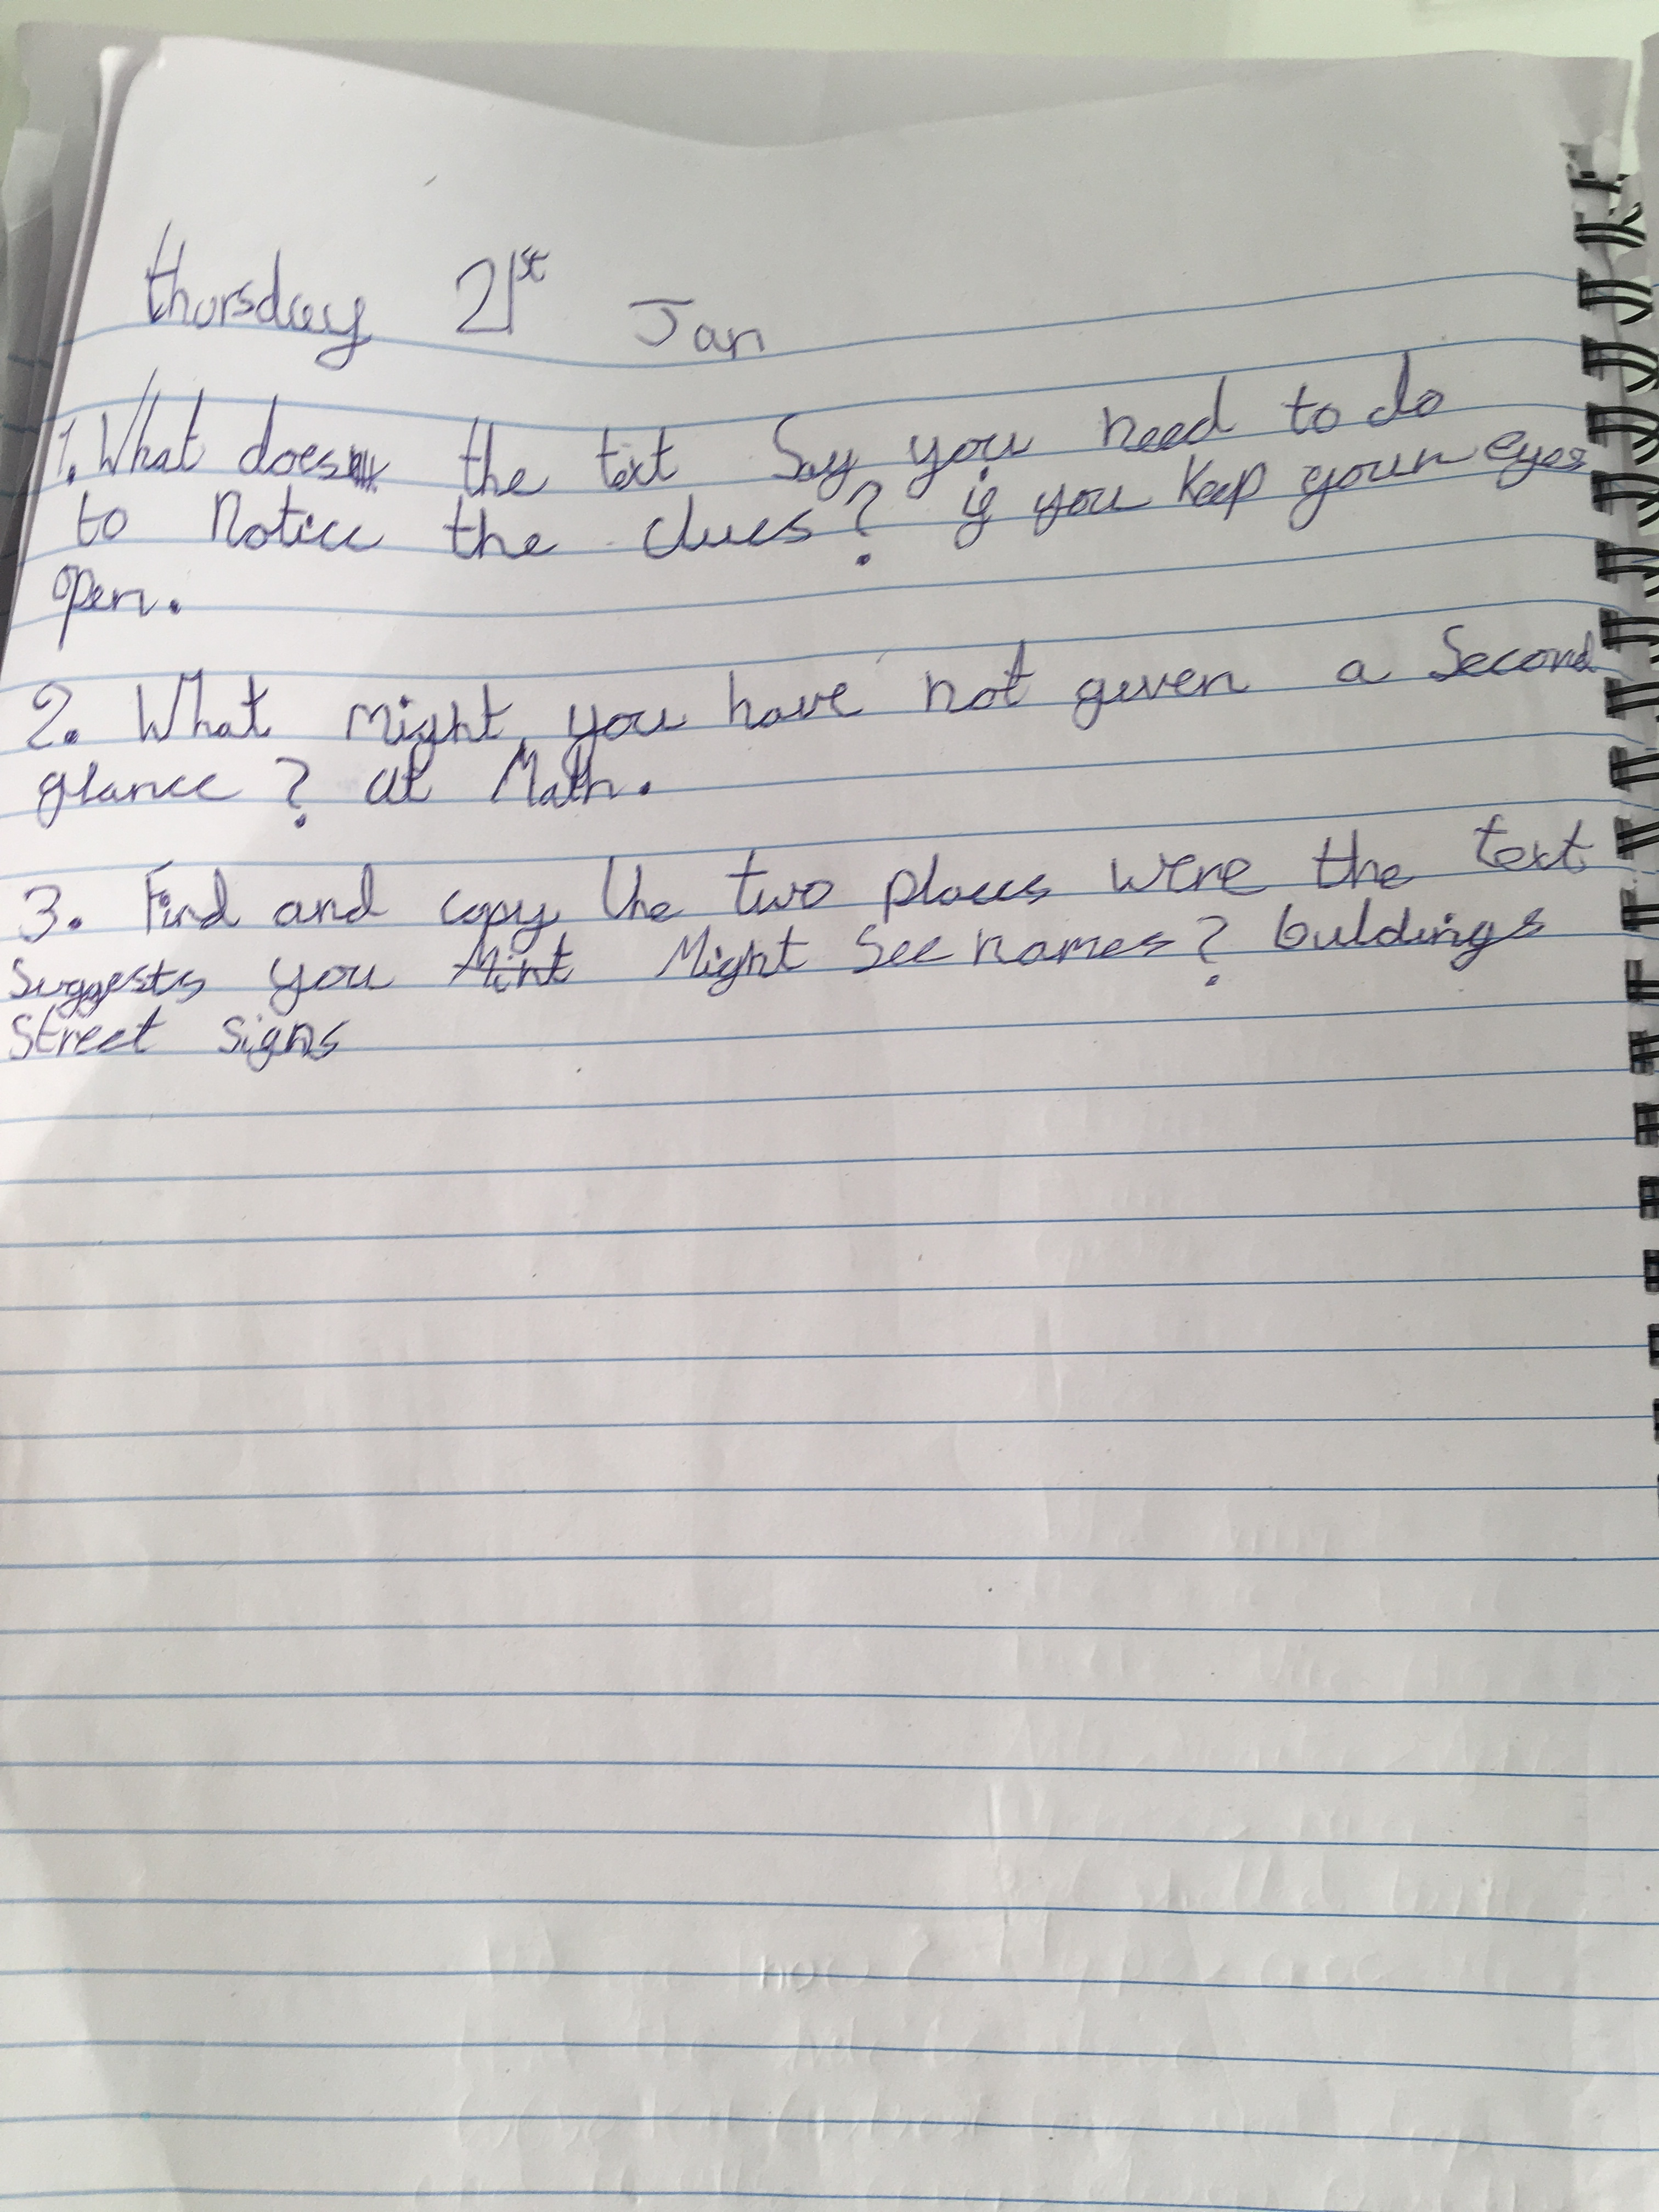 thursday 21st Jan
1. What does the text Say you need to do
to Notice the clues? if you keep your eyes
open.
2. What might you have not given a Second
glance? at Math.
3. Find and copy the two places were the text
suggests you Mint Might See names? buildings
Street signs